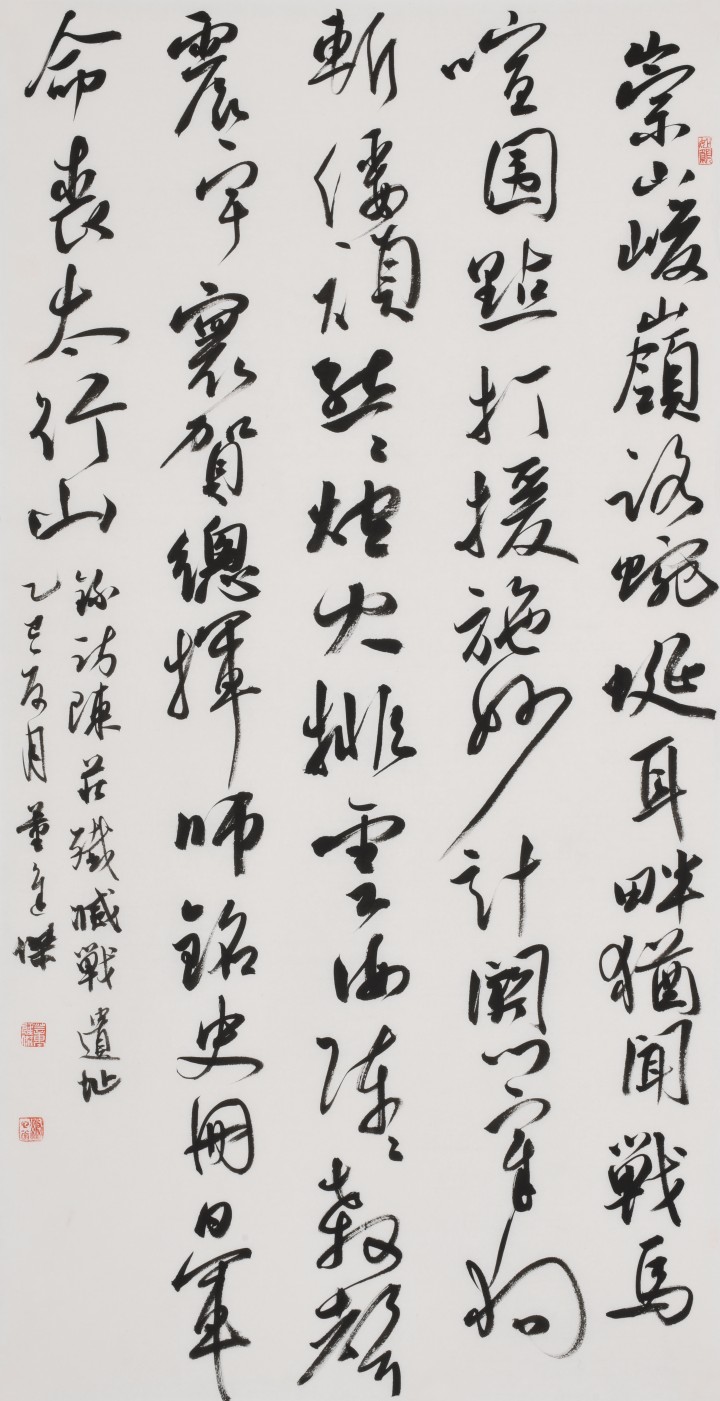 崇山峻嶺路蜿蜒耳畔猶聞戰馬
喧围點打援施妙計關門宰狗
斬倭頑熊熊煙火排雲海陣陣殺聲
震宇寰賀總揮師銘史冊日軍
命喪太行山
錄訪陳莊殲滅戰遺址
乙巳夏月董傑